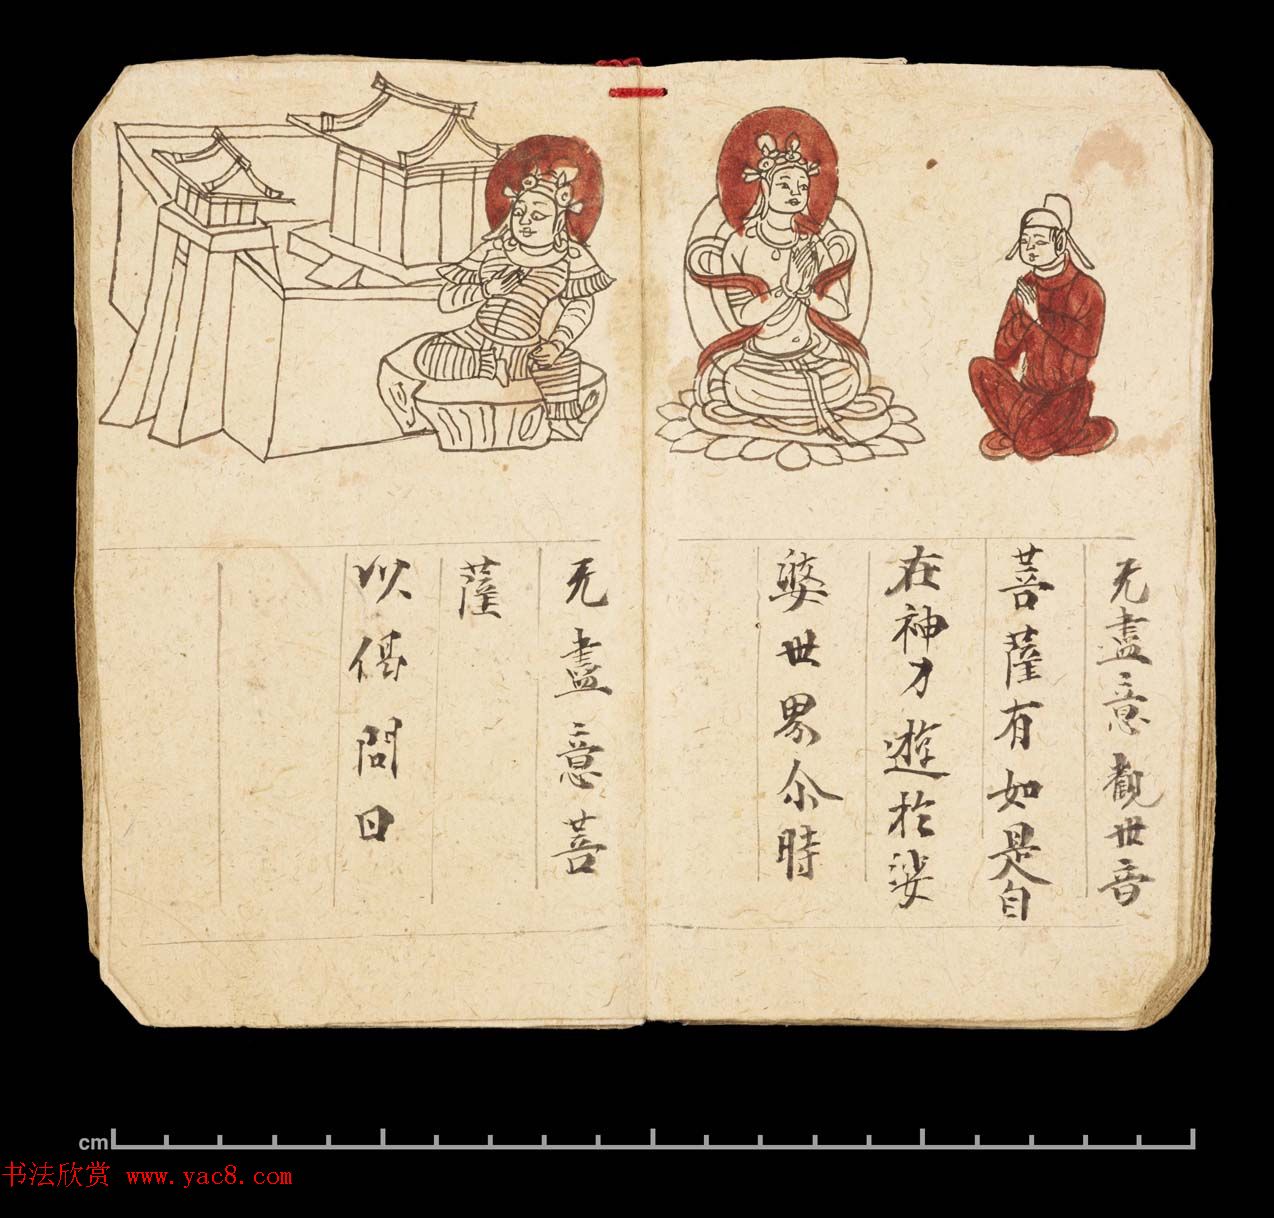 无盡意觀世音
菩薩有如是自
在神力遊於娑
婆世界尒時
无盡意菩
薩
以偈問曰
cm
书法欣赏 www.yac8.com